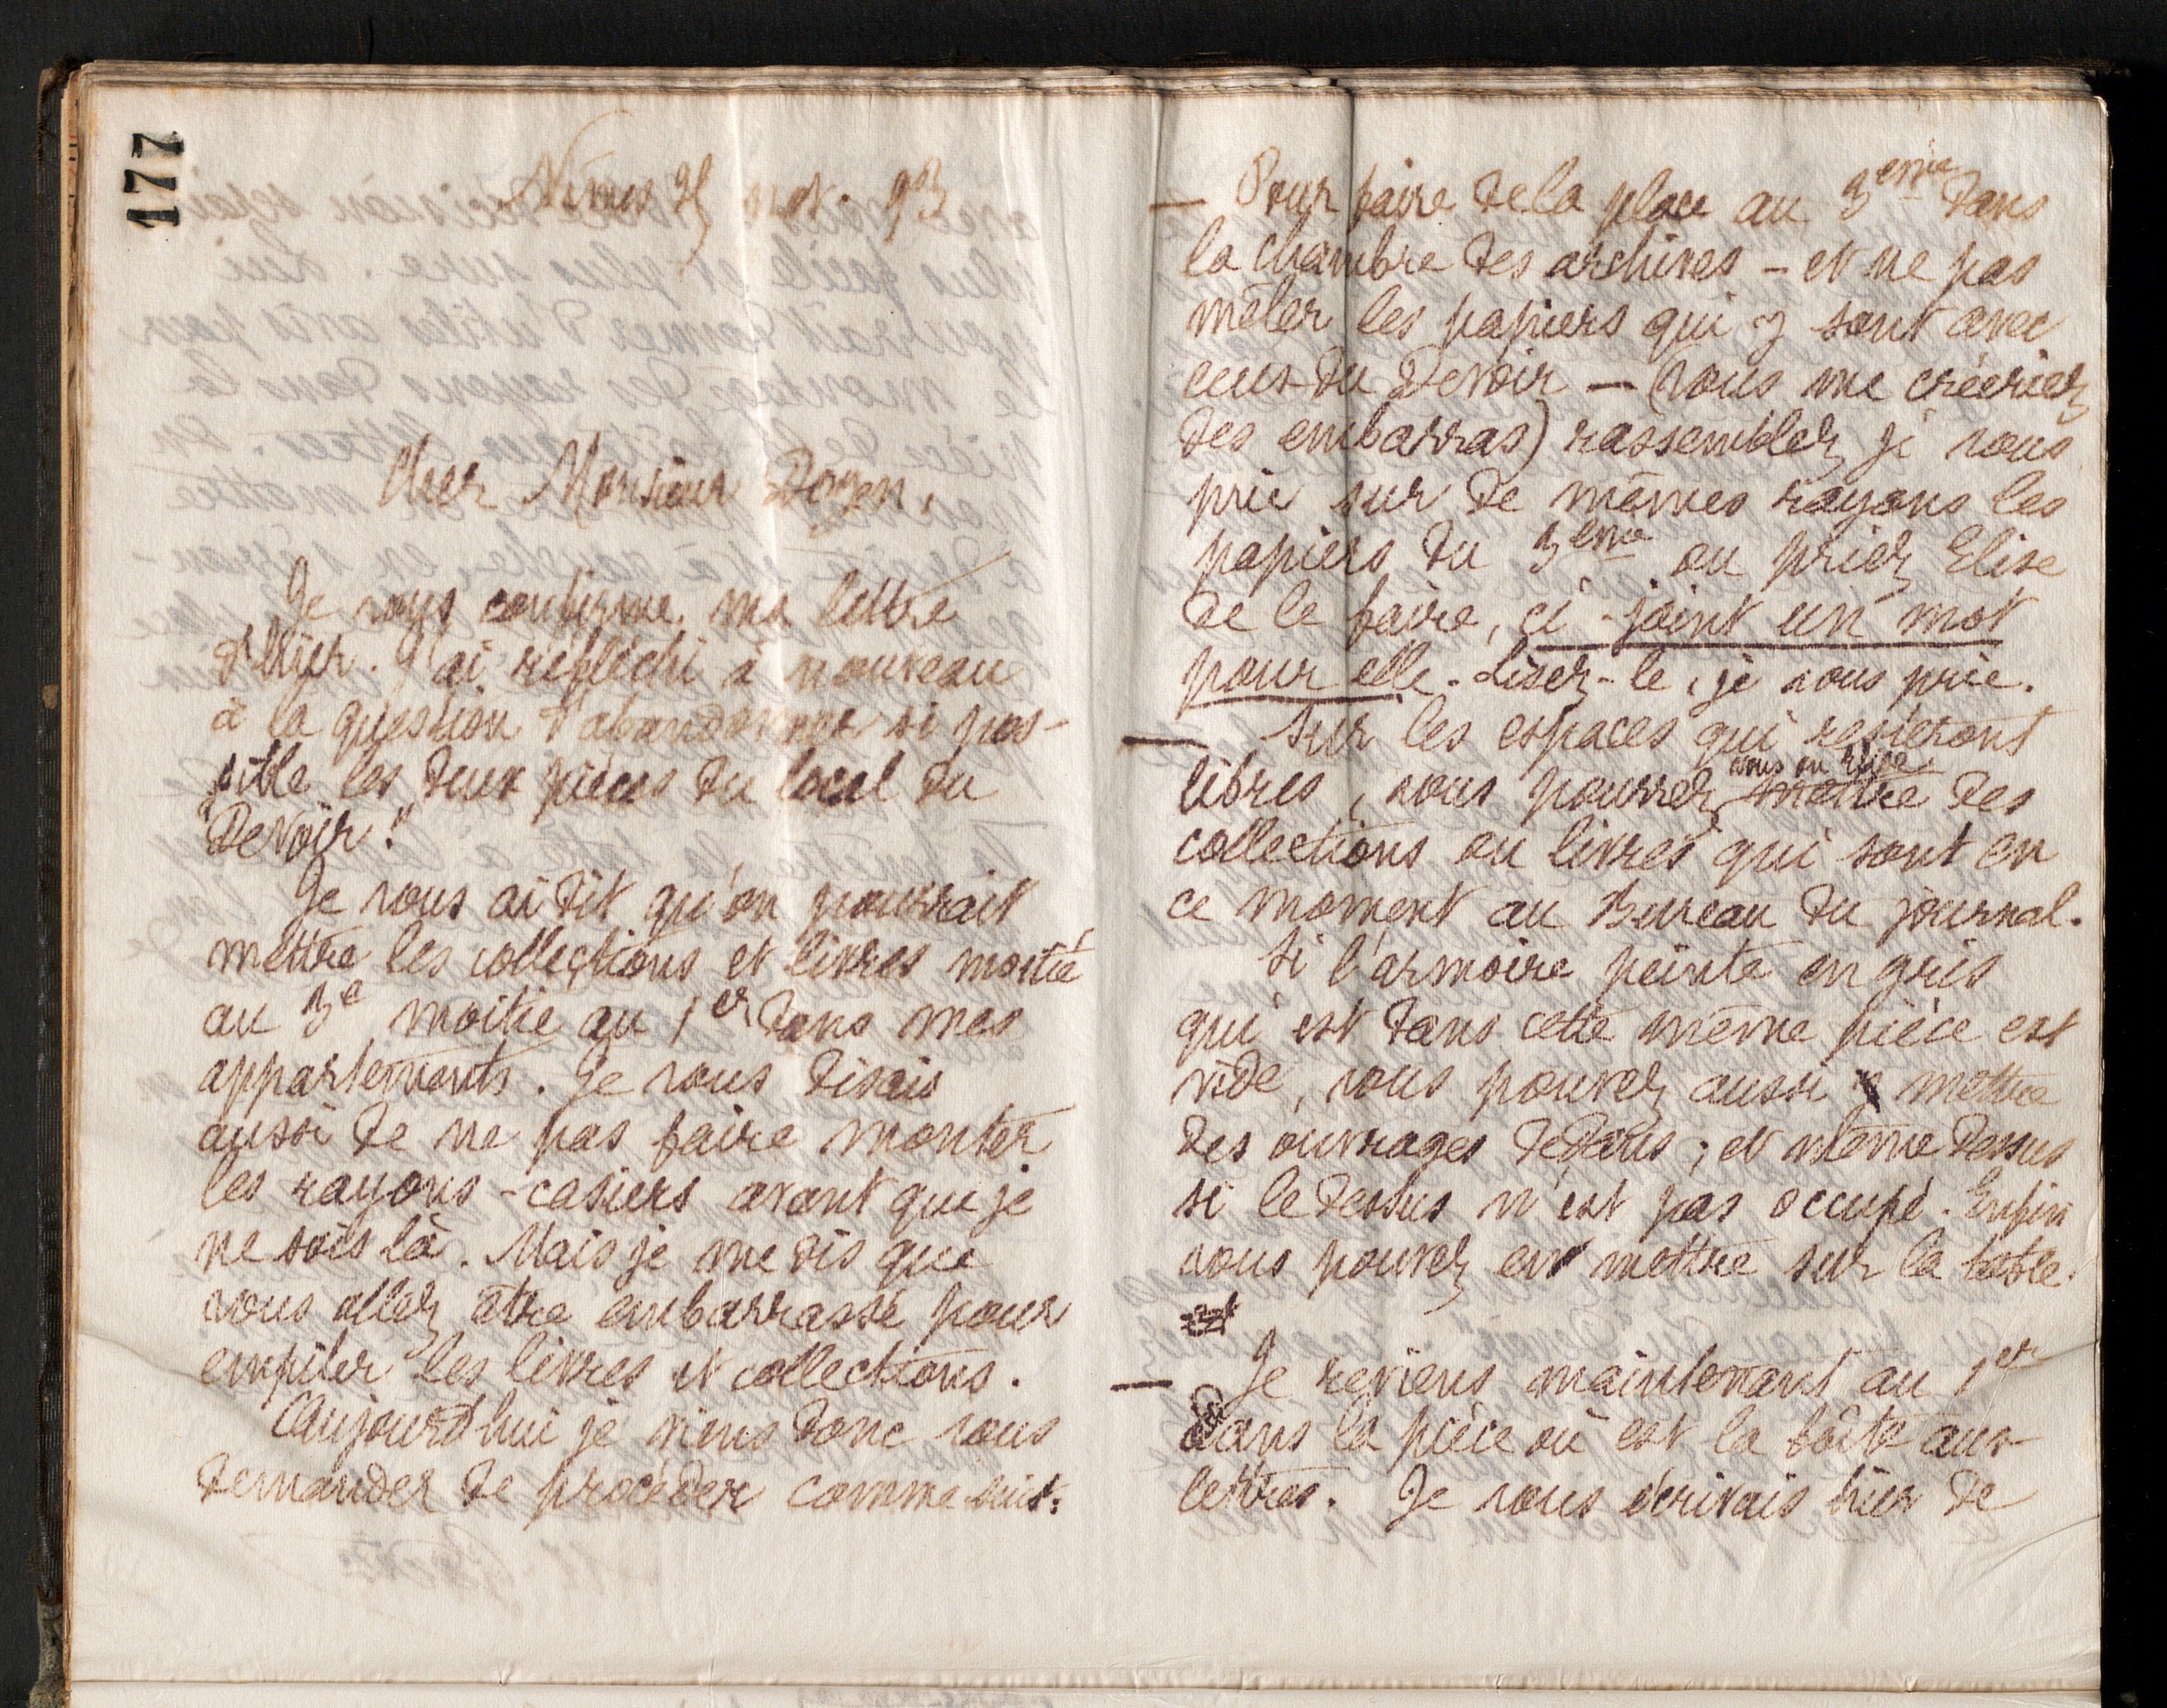 177
Nîmes 25 nov. 93
Cher Monsieur Doyen,
Je vous confirme ma lettre
d'hier. J'ai réfléchi à nouveau
à la question d'abandonner si pos-
sible les deux pièces du local du
"Devoir."
Je vous ai dit qu'on pourrait
mettre les collections et livres moitié
au 3e moitié au 1er dans mes
appartements. Je vous disais
aussi de ne pas faire monter
les rayons-casiers avant que je
ne sois là. Mais je me dis que
vous allez être embarrassé pour
empiler les livres et collections.
Aujourd'hui je viens donc vous
demander de procéder comme suit:
— Pour faire de la place au 3eme dans
la chambre des archives - et ne pas
mêler les papiers qui y sont avec
ceux du Devoir — (vous me créeriez
des embarras) rassemblez je vous
prie sur de mêmes rayons les
papiers du 3eme ou priez Elise
de le faire, ci-joint un mot
pour elle. Lisez-le, je vous prie.
— Sur les espaces qui resteront
libres, vous pourrez vous ou Elise mettre des
collections ou livres qui sont en
ce moment au Bureau du journal.
Si l'armoire peinte en gris
qui est dans cette même pièce est
vide, vous pouvez aussi y mettre
des ouvrages dedans; et même dessus
si le dessus n'est pas occupé. Enfin
vous pouvez en mettre sur la table.
— Je reviens maintenant au 1er
dans la pièce où est la boîte aux
lettres. Je vous écrivais hier de